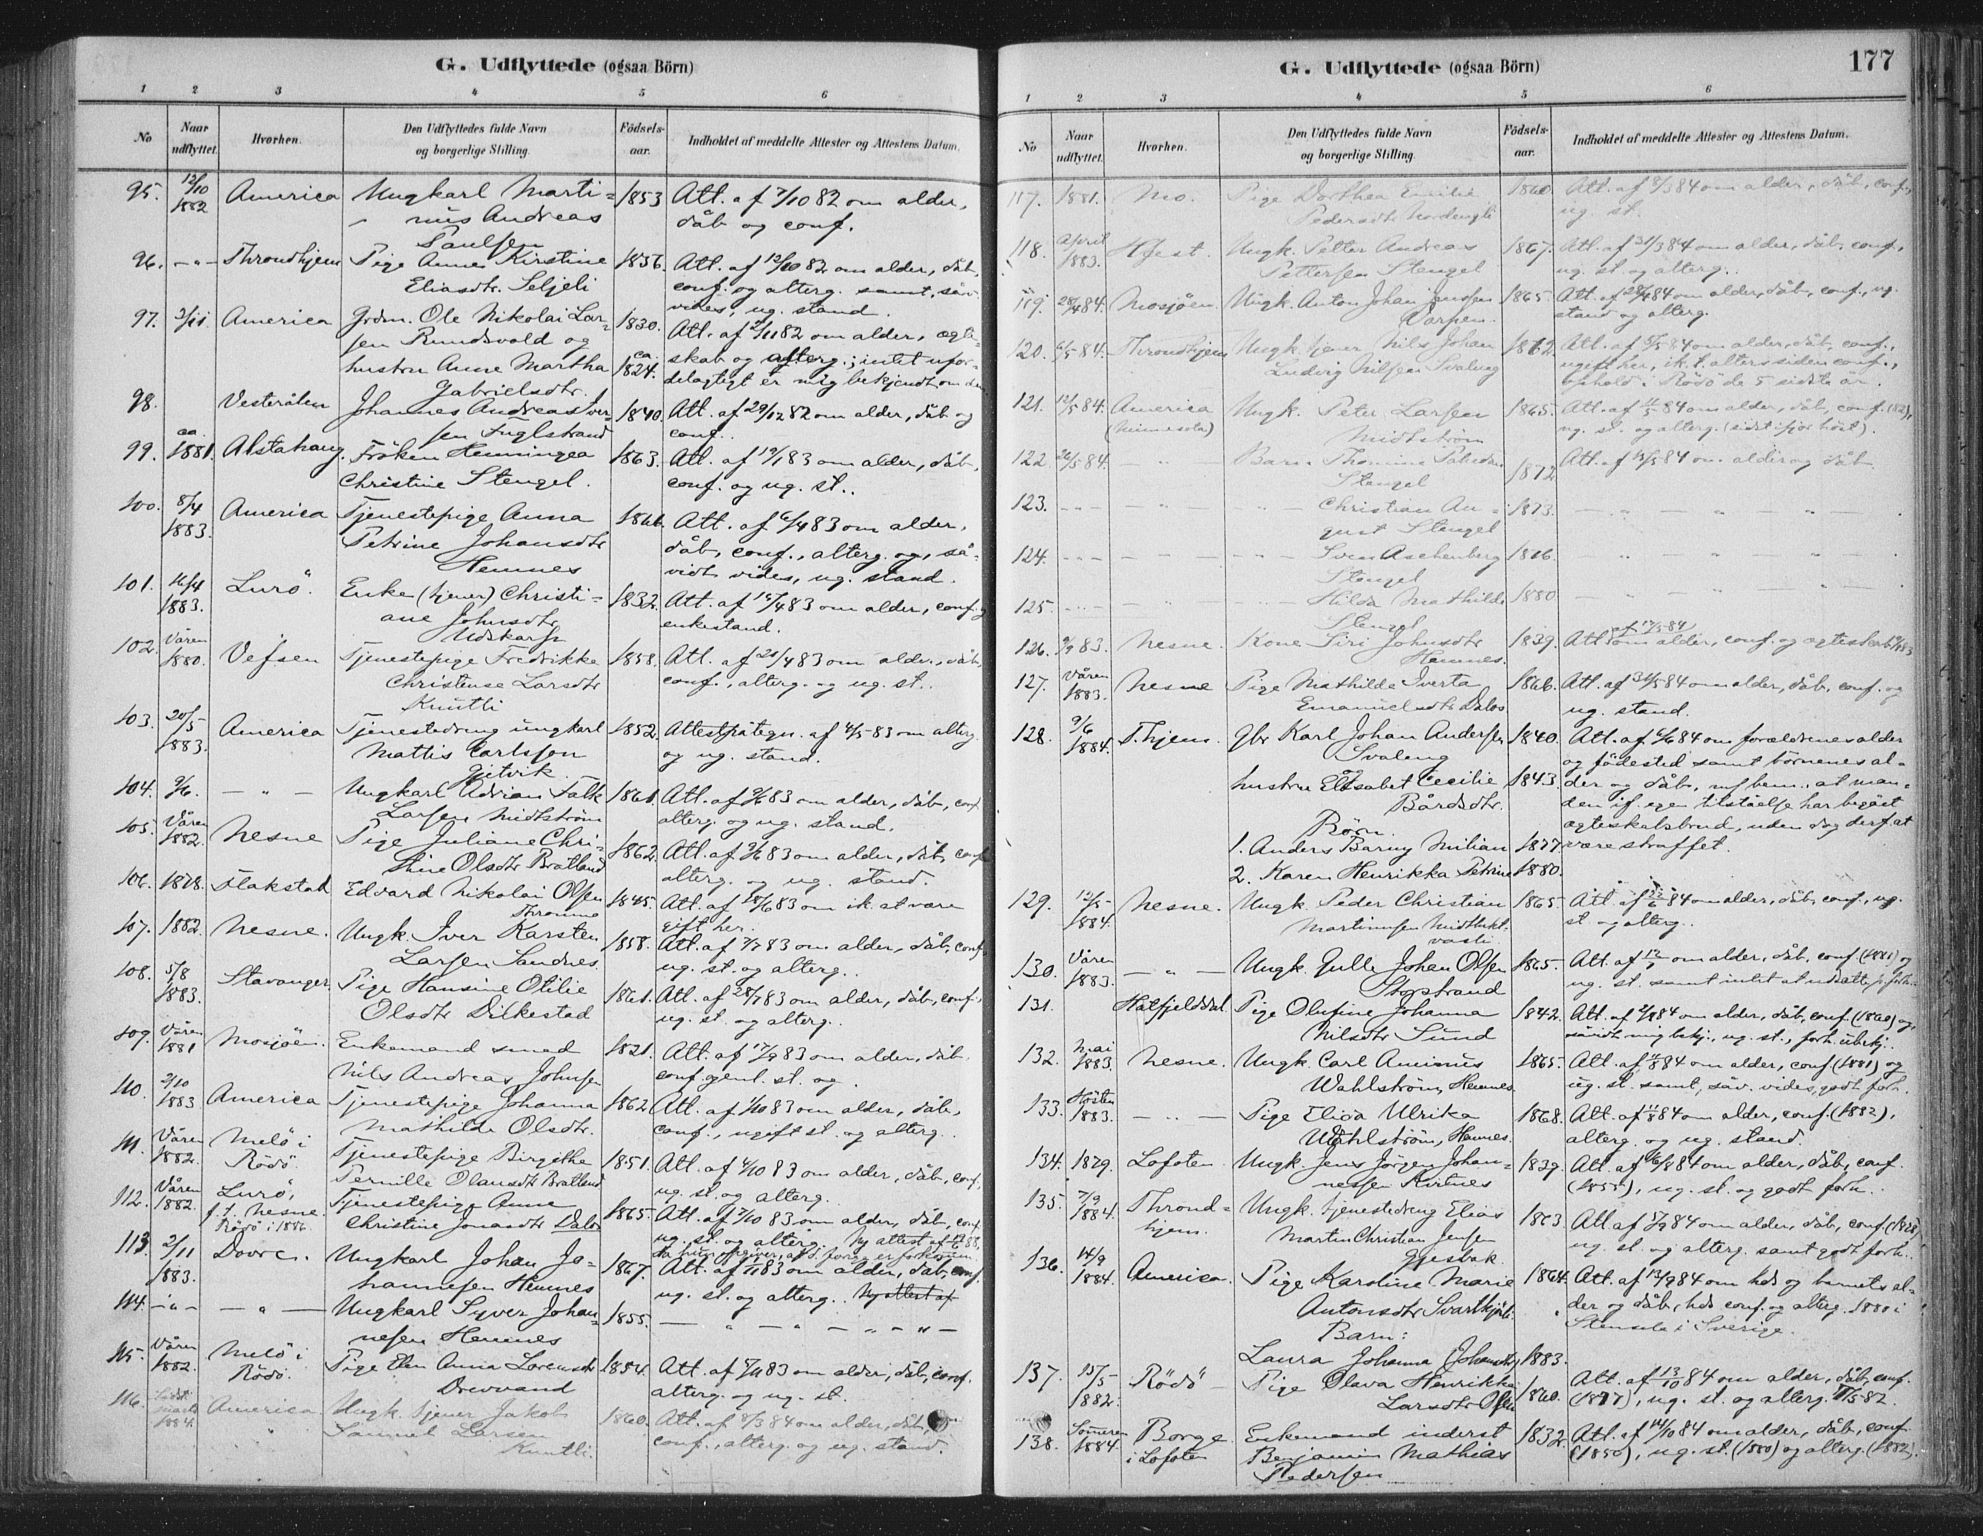 G. Udflyttede (ogsaa Börn)
1 2 3 4 5 6
No
Naar udflyttet.
Hvorhen.
Den Udflyttedes fulde Navn og borgerlige Stilling.
Födsels-aar.
Indholdet af meddelte Attester og Attestens Datum.
95. 12/10 1882 America Ungkarl Marti- 1853 Att. af 7/10 82 om alder,
nus Andreas dåb og conf.
Paulsen
96. -"- Throndhjem Pige Anne Kirstine 1836. Att. af 12/10 82 om alder, dåb,
Eliasdtr. Seljeli conf. og alterg. samt, såv.
vides, ug. stand.
97. America Grdm. Ole Nikolai Lar- 1830. Att. af 2/11 82 om alder, ægte-
sen Rundsvold og skab og alterg.; intet ufor-
hustru Anne Martha ca. 1824. delagtigt er mig bekjendt om dem
Gabrielsdtr.
98. Vesterålen Johannes Andreas Iver- 1840. Att. af 29/12 82 om alder, dåb og
sen Fuglstrand conf..
99. ca. 1881. Alstahaug Fröken Henningea 1863. Att. af 19/1 83 om alder, dåb,
Christine Stengel. conf. og ug. st..
100. 8/4 1883. America Tjenestepige Anna 1866. Att. af 6/4 83 om alder,
Petrine Johansdtr dåb, conf., alterg. og, så-
Hemnes vidt vides, ug. stand.
101. 16/4 1883. Lurö. Enke (tjener) Christi- 1832. Att. af 15/4 83 om alder, conf. og
ane Johnsdtr enkestand.
Udskarp
102. Våren 1880. Vefsen Tjenestepige Fredrikke 1858. Att. af 20/4 83 om alder, dåb,
Christense Larsdtr conf., alterg. og ug. st..
Kuntli
103. 20/5 1883. America Tjenestedreng ungkarl 1852. Attestpåtegn. af 4/5 83 om alterg.
Mattis Carlsson og ug. stand.
Gjetvik.
104. 9/6. - " - Ungkarl Adrian Falk 1861. Att. af 9/6 83 om alder, dåb, conf.
Larsen Midtström alterg. og ug. stand.
105. Våren 1882. Nesne Pige Juliane Chri- 1862. Att. af 9/6 83 om alder, dåb, conf.
stine Olsdtr Bratland alterg. og ug. stand.
106. 1878. Flakstad Edvard Nikolai Olsen 1845. Att. af 18/6 83 om ik. at være
gift her.
107. 1882. Nesne. Ungk. Iver Karsten 1858. Att. af 7/7 83 om alder, dåb, conf.,
Larsen Sandnes. ug. st. og alterg..
108. 5/8 1883. Stavanger. Pige Hansine Otilie 1861. Att. af 28/7 83 om alder, dåb, conf.,
Olsdtr Dilkestad ug. st. og alterg..
109. Våren 1881 Mosjöen. Enkemand smed 1821. Att. af 17/9 83 om alder, dåb,
Nils Andreas Johnsen
110. 2/10 1883 America Tjenestepige Johanna 1862. Att. af 1/10 83 om alder, dåb,
Mathilde Olsdtr. conf., ugift st. og alterg..
111. Våren 1882. Melö i Rödö. Tjenestepige Birgithe 1851. Att. af 4/10 83 om alder, dåb, conf.,
Pernille Olausdtr Bratland ug. st. og alterg.
112. Våren 1882. Lurö, f. t. Nesne Rödö i 1886. Tjenestepige Anne 1865. Att. af 7/10 83 om alder, dåb, conf.
Christine Jonasdtr Dalos ug. st. og alterg. Ny attest af
113. 2/11 1883. Dovre. Ungkarl Johan Jo- 1867. Att. af 1/11 83 om alder, dåb, conf.
hannesen Hemnes ug. st. og alterg.. Ny attest af
114. -"- - " - Ungkarl Syver Johan- 1855. - " - " - " - " -
nesen Hemnes
115. Våren 1882. Melö i Rödö. Pige Elen Anna Lorensdtr 1854. Att. af 5/11 83 om alder, dåb, conf.
Drevvand alterg. og ug. st.
116. Sidst marts 1884. America Ungk. tjener Jakob 1860. Att. af 8/3 84 om alder, dåb,
Samuel Larsen conf., alterg. og ug. stand.
Kuntli.
G. Udflyttede (ogsaa Börn)
177
1 2 3 4 5 6
No
Naar udflyttet.
Hvorhen.
Den Udflyttedes fulde Navn og borgerlige Stilling.
Födsels-aar.
Indholdet af meddelte Attester og Attestens Datum.
117. 1881. Mo. Pige Dorthea Emilie 1860. Att. af 8/3 84 om alder, dåb, conf.,
Pedersdtr Nordengli ug. st.
118. April 1883. Höest. Ungk. Petter Andreas 1867. Att. af 31/3 84 om alder, dåb, conf.,
Pettersen Stengel ug. st. og alterg..
119. 28/4 84. Mosjöen Ungk. Anton Johan Jensen 1865. Att. af 28/4 84 om alder, dåb, conf., ug.
stand og alterg.
120. 6/5 84. Throndhjem Ungk. tjener Nils Johan 1862. Att. af 5/5 84 om alder, dåb, conf.,
Ludvig Nilsen Svaleng ugift her, ik. t. alters siden conf.,
ophold i Rödö de 5 sidste år.
121. 12/5 84. America (Minnesota) Ungk. Peter Larsen 1865. Att. af 11/5 84 om alder, dåb, conf. (82),
Midtström ug. st. og alterg. (sidst ifjor höst).
122. 26/5 84. - " Barn Thomine 1872. Att. af 13/5 84 om alder og dåb
Stengel
123. - - - - " - Christian Au- 1873. - " - " - .
gust Stengel
124. - - - - " - Sven Aschenberg 1876. " " "
Stengel
125. - - - - " - Hilda Mathilde 1880. - " - " -
Stengel
126. 9/9 83. Nesne. Kone Siri Johnsdtr 1839. Att. af 17/5 84 om alder, conf. og ægteskab
Hemnes.
127. Våren 1883. Nesne Pige Mathilde Iverta 1866. Att. af 31/5 84 om alder, dåb, conf. og
Emanuelsdtr Dalos ug. stand.
128. 9/6 1884. T.hjem. Gbr Karl Johan Andersen 1840. Att. af 6/6 84 om forældrenes alder
Svaleng og födested samt börnenes al-
hustru Elisabet Cecilie 1843. der og dåb, m/ bem. at man-
Bårdsdtr. den if. egen tilståelse har begået
Börn. ægteskabsbrud, uden dog derf. at
1. Anders Barny Milian 1877 være straffet.
2. Karen Henrikka Petrine 1880.
129. 12/5 1884. Nesne. Ungk. Peder Christian 1865 Att. af 22/6 84 om alder, dåb, conf., ug.
Martinusen st. og alterg..
130. Våren 1883. - " - Ungk. Gulle Johan Olsen 1865. Att. af om alder, dåb, conf. (1881) og
ug. st. samt intet at udsætte p. forh..
131. Hatfjelddal. Pige Olufine Johanna 1842. Att. af om alder, dåb, conf. (1860) og,
Nilsdtr Sund såvidt mig bekj., ug. st., forh. ubekj..
132. Mai 1883. Nesne. Ungk. Carl Aminus 1865. Att. af 11/8 84 om alder, conf. (1881) og
Wahlström, Hemnes. ug. st. samt, såv. vides, godt forh.
133. Hösten 1883. - " - Pige Elisa Ulrika 1868. Att. af 11/8 84 om alder, conf. (1882),
Wahlström, Hemnes. alterg. og ug. stand.
134. 1879. Lofoten. Ungk. Jens Jörgen Johan- 1839. Att. af 16/8 84 om alder, dåb, conf.
nessen Kvitnes (1855), ug. st. og godt forh..
135. 7/9 1884. Throndhjem. Ungk. tjenestedreng Elias 1863. Att. af 5/9 84 om alder, dåb, conf. (1878),
Martin Christian Jensen ug. st. og alterg. samt godt forh..
Gjesbak
136. 14/9 1884. America. Pige Karoline Marie 1864. Att. af 13/9 84 om hds og barnets al-
Antonsdtr Svartkjönli. der og dåb, hds conf. og alterg. 1880 i
Barn: Stensele i Sverige.
Laura Johanna (Johansdtr) 1883.
137. 15/5 1882. Rödö Pige Olava Henrikke 1860. Att. af 13/10 84 om alder, dåb, conf.
Larsdtr Osen (1877), ug. st. og alterg. 11/5 82.
138. Sömeren 1884. Borge i Lofoten Enkemand inderst 1832. Att. af 14/10 84 om alder, dåb, conf.
Benjamin Mathias (1850), ug. st. (1880) og alterg. (1882).
Pedersen